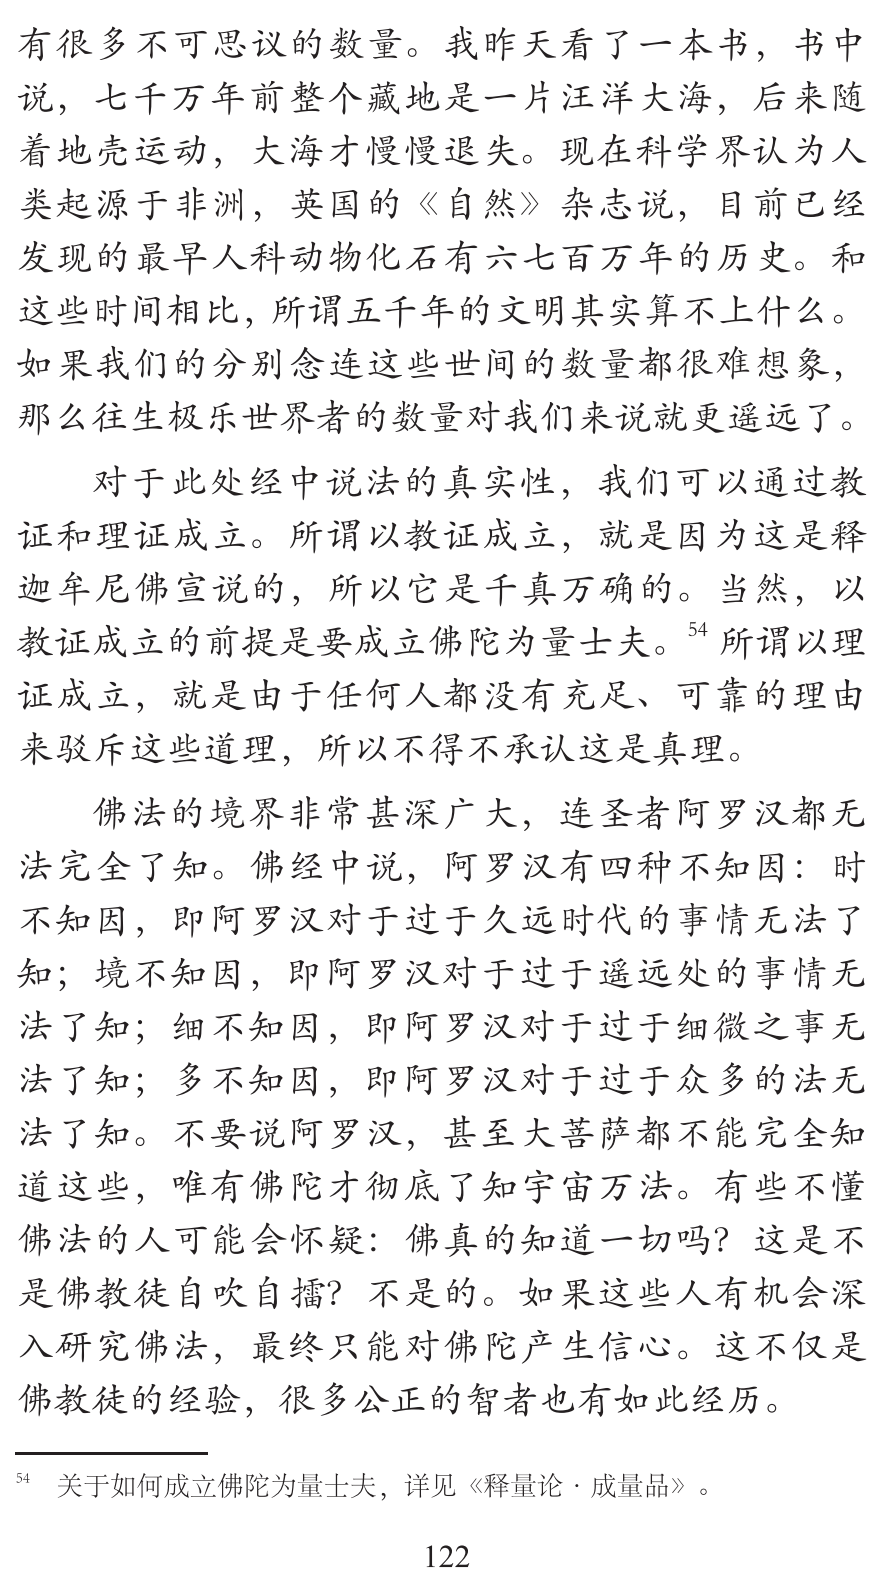 有很多不可思议的数量。我昨天看了一本书，书中
说，七千万年前整个藏地是一片汪洋大海，后来随
着地壳运动，大海才慢慢退失。现在科学界认为人
类起源于非洲，英国的《自然》杂志说，目前已经
发现的最早人科动物化石有六七百万年的历史。和
这些时间相比，所谓五千年的文明其实算不上什么。
如果我们的分别念连这些世间的数量都很难想象，
那么往生极乐世界者的数量对我们来说就更遥远了。
对于此处经中说法的真实性，我们可以通过教
证和理证成立。所谓以教证成立，就是因为这是释
迦牟尼佛宣说的，所以它是千真万确的。当然，以
教证成立的前提是要成立佛陀为量士夫。54 所谓以理
证成立，就是由于任何人都没有充足、可靠的理由
来驳斥这些道理，所以不得不承认这是真理。
佛法的境界非常甚深广大，连圣者阿罗汉都无
法完全了知。佛经中说，阿罗汉有四种不知因：时
不知因，即阿罗汉对于过于久远时代的事情无法了
知；境不知因，即阿罗汉对于过于遥远处的事情无
法了知；细不知因，即阿罗汉对于过于细微之事无
法了知；多不知因，即阿罗汉对于过于众多的法无
法了知。不要说阿罗汉，甚至大菩萨都不能完全知
道这些，唯有佛陀才彻底了知宇宙万法。有些不懂
佛法的人可能会怀疑：佛真的知道一切吗？这是不
是佛教徒自吹自擂？不是的。如果这些人有机会深
入研究佛法，最终只能对佛陀产生信心。这不仅是
佛教徒的经验，很多公正的智者也有如此经历。
54 关于如何成立佛陀为量士夫，详见《释量论·成量品》。
122